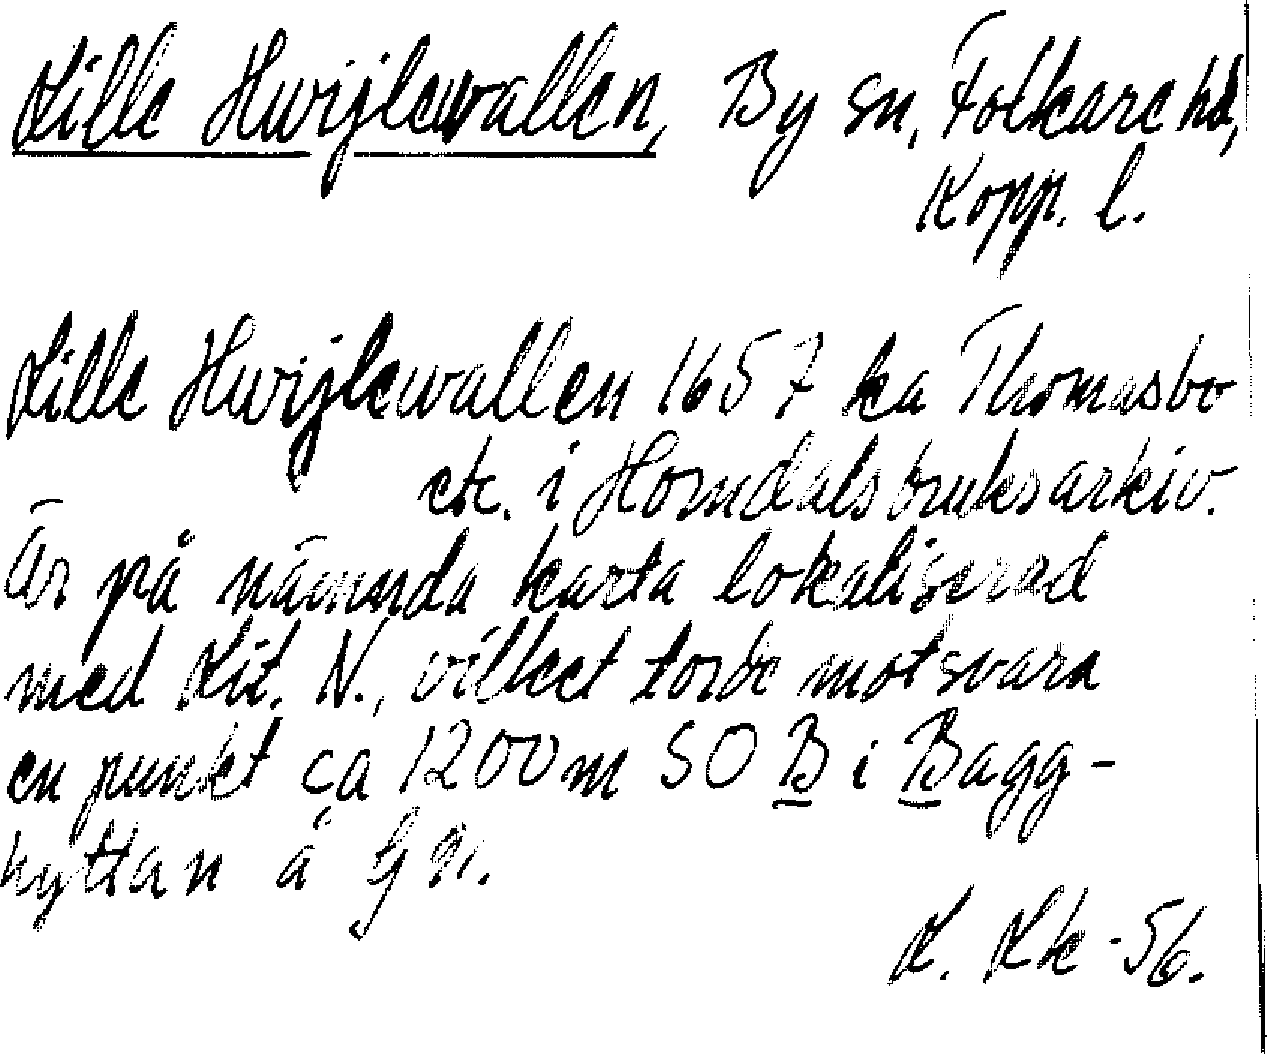 Lille Hwijlewallen, By sn, Folkare hd,
Kopp. l.
Lille Hwijlewallen 1657 ka Thomasbo
etc. i Horndals bruksarkiv.
Är på nämnda karta lokaliserad
med Lit. N., vilket torde motsvara
en punkt ca 1200 m SO B i Bagg-
hyttan å
L. Lk -56.